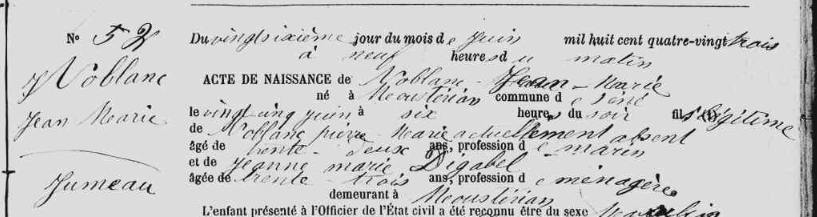 N° 52
Noblanc
Jean Marie
Jumeau
Du vingt sixième jour du mois de Juin mil huit cent quatre-vingt trois
à neuf heures du matin
ACTE DE NAISSANCE de Noblanc Jean-Marie
né à Moustérian commune de Séné
le vingt cinq juin à six heures du soir fils légitime
de Noblanc pierre Marie actuellement absent
âgé de trente-deux ans, profession de marin
et de Jeanne marie Digabel
âgée de trente trois ans, profession de ménagère
demeurant à Moustérian
L'enfant présenté à l'Officier de l'État civil a été reconnu être du sexe Masculin